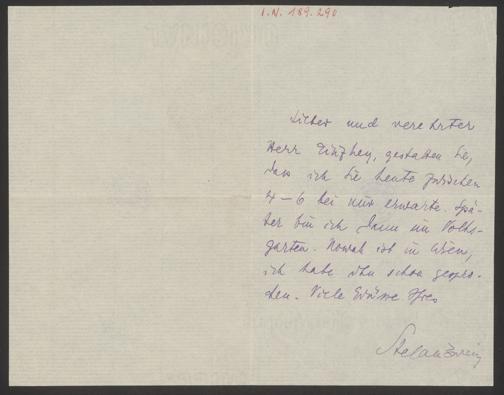 I.N. 189.290
Lieber und verehrter
Herr Ginzkey, gestatten Sie,
dass ich Sie heute zwischen
4–6 bei mir erwarte. Spä-
ter bin ich dann im Volks-
garten. Nowak ist in Wien,
ich habe ihn schon gespro-
chen. Viele Grüsse Ihres
Stefan Zweig